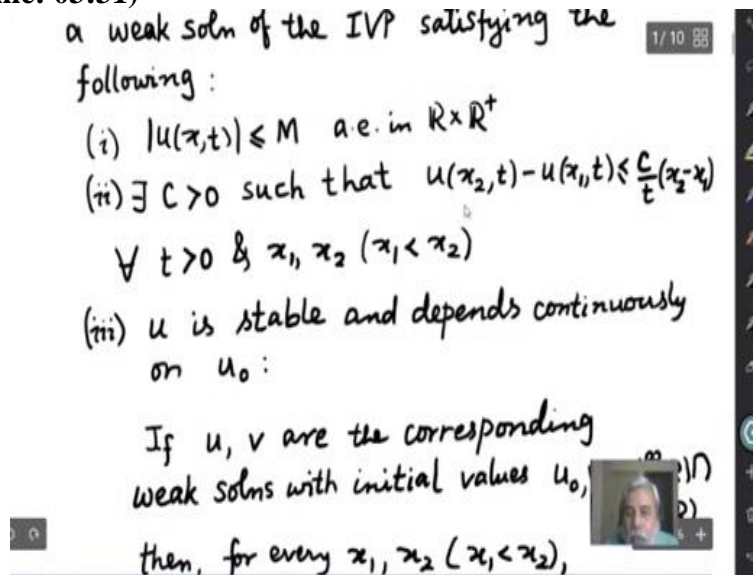 03:31)
a weak soln of the IVP satisfying the
1/10
following :
(i) |u(x,t)| ≤ M a.e. in ℝ×ℝ⁺
(ii) ∃ C>0 such that u(x₂,t)-u(x₁,t) ≤ C/t (x₂-x₁)
∀ t>0 & x₁, x₂ (x₁<x₂)
(iii) u is stable and depends continuously
on u₀ :
If u, v are the corresponding
weak solns with initial values u₀,
then, for every x₁, x₂ (x₁<x₂),